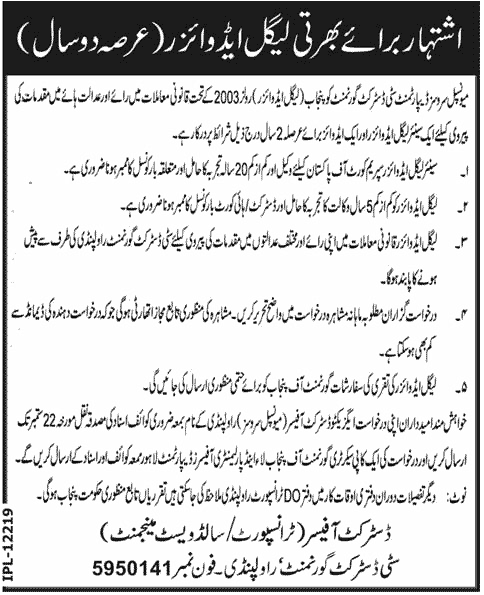 اشتہار برائے بھرتی لیگل ایڈوائزر (عرصہ دو سال)
میونسپل سروسز ڈیپارٹمنٹ سٹی ڈسٹرکٹ گورنمنٹ کو پنجاب (لیگل ایڈوائزر) رولز 2003 کے تحت قانونی معاملات میں رائے اور عدالت ہائے میں مقدمات کی
پیروی کیلئے ایک سینئر لیگل ایڈوائزر اور ایک ایڈوائزر برائے عرصہ 2 سال درج ذیل شرائط پر درکار ہے۔
۱۔ سینئر لیگل ایڈوائزر سپریم کورٹ آف پاکستان کیلئے وکیل اور کم از کم 20 سالہ تجربہ کا حامل اور متعلقہ بار کونسل کا ممبر ہونا ضروری ہے۔
۲۔ لیگل ایڈوائزر کو کم از کم 5 سال وکالت کا تجربہ کا حامل اور ڈسٹرکٹ/ہائی کورٹ بار کونسل کا ممبر ہونا ضروری ہے۔
۳۔ لیگل ایڈوائزر قانونی معاملات میں اپنی رائے اور مختلف عدالتوں میں مقدمات کی پیروی کیلئے سٹی ڈسٹرکٹ گورنمنٹ راولپنڈی کی طرف سے پیش
ہونے کا پابند ہوگا۔
۴۔ درخواست گزاران مطلوبہ ماہانہ مشاہرہ درخواست میں واضح تحریر کریں۔ مشاہرہ کی منظوری تابع مجاز اتھارٹی ہوگی جو کہ درخواست دہندہ کی ڈیمانڈ سے
کم بھی ہوسکتا ہے۔
۵۔ لیگل ایڈوائزر کی تقرری کی سفارشات گورنمنٹ آف پنجاب کو برائے حتمی منظوری ارسال کی جائیں گی۔
خواہش مند امیدداران اپنی درخواست ایگزیکٹو ڈسٹرکٹ آفیسر (میونسپل سروسز) راولپنڈی کے نام بمعہ ضروری کوائف اسناد کی مصدقہ نقل مورخہ 22 ستمبر تک
ارسال کریں اور درخواست کی ایک کاپی سیکرٹری گورنمنٹ آف پنجاب لاء اینڈ پارلیمنٹری آفیسرز ڈیپارٹمنٹ لاہور بمعہ کوائف اور اسناد کے ارسال کریں گے۔
نوٹ: دیگر تفصیلات دوران دفتری اوقات کار میں دفتر DO ٹرانسپورٹ راولپنڈی ملاحظہ کی جاسکتی ہیں تقرریاں تابع منظوری حکومت پنجاب ہوگی۔
ڈسٹرکٹ آفیسر (ٹرانسپورٹ/سالڈ ویسٹ مینجمنٹ)
سٹی ڈسٹرکٹ گورنمنٹ، راولپنڈی۔ فون نمبر 5950141
IPL-12219